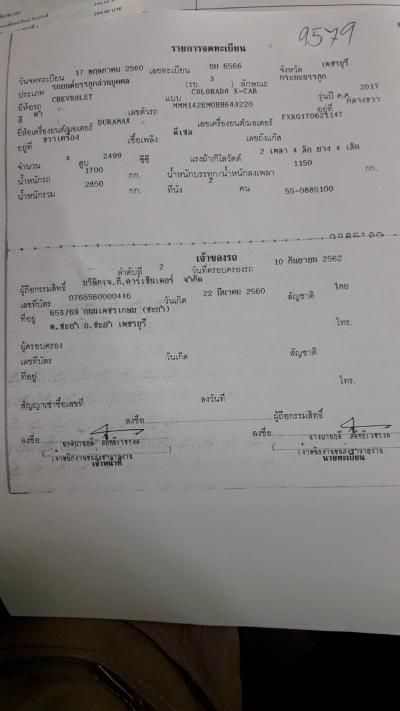 9579
รายการจดทะเบียน
วันจดทะเบียน 17 พฤษภาคม 2560 เลขทะเบียน ขม 6566 จังหวัด เพชรบุรี
ประเภท รถยนต์บรรทุกส่วนบุคคล (รย. 3 ) ลักษณะ กระบะบรรทุก
ยี่ห้อรถ CHEVROLET แบบ COLORADO X-CAB รุ่นปี ค.ศ. 2017
สี ดำ เลขตัวรถ MMM142EM0HH643220 อยู่ที่ กลางขวา
ยี่ห้อเครื่องยนต์/มอเตอร์ DURAMAX เลขเครื่องยนต์/มอเตอร์ FXRG170621147
อยู่ที่ ขวาเครื่อง เชื้อเพลิง ดีเซล เลขถังแก๊ส
จำนวน 4 สูบ 2499 ซีซี แรงม้า/กิโลวัตต์ 2 เพลา 4 ล้อ ยาง 4 เส้น
น้ำหนักรถ 1700 กก. น้ำหนักบรรทุก/น้ำหนักลงเพลา 1150 กก.
น้ำหนักรวม 2850 กก. ที่นั่ง 2 คน 55-0885100
เจ้าของรถ
ลำดับที่ 2 วันที่ครอบครองรถ 10 กันยายน 2562
ผู้ถือกรรมสิทธิ์ บริษัทเจ.กี.คาร์เซ็นเตอร์ จำกัด
เลขที่บัตร 0765560000446 วันเกิด 22 มีนาคม 2560 สัญชาติ ไทย
ที่อยู่ 653/69 ถนนเพชรเกษม (ชะอำ)
ต.ชะอำ อ.ชะอำ เพชรบุรี โทร.
ผู้ครอบครอง
เลขที่บัตร วันเกิด สัญชาติ
ที่อยู่
โทร.
สัญญาเช่าซื้อเลขที่ ลงวันที่
ลงชื่อ ผู้ถือกรรมสิทธิ์
ลงชื่อ ลงชื่อ
เจ้าหน้าที่ นายทะเบียน